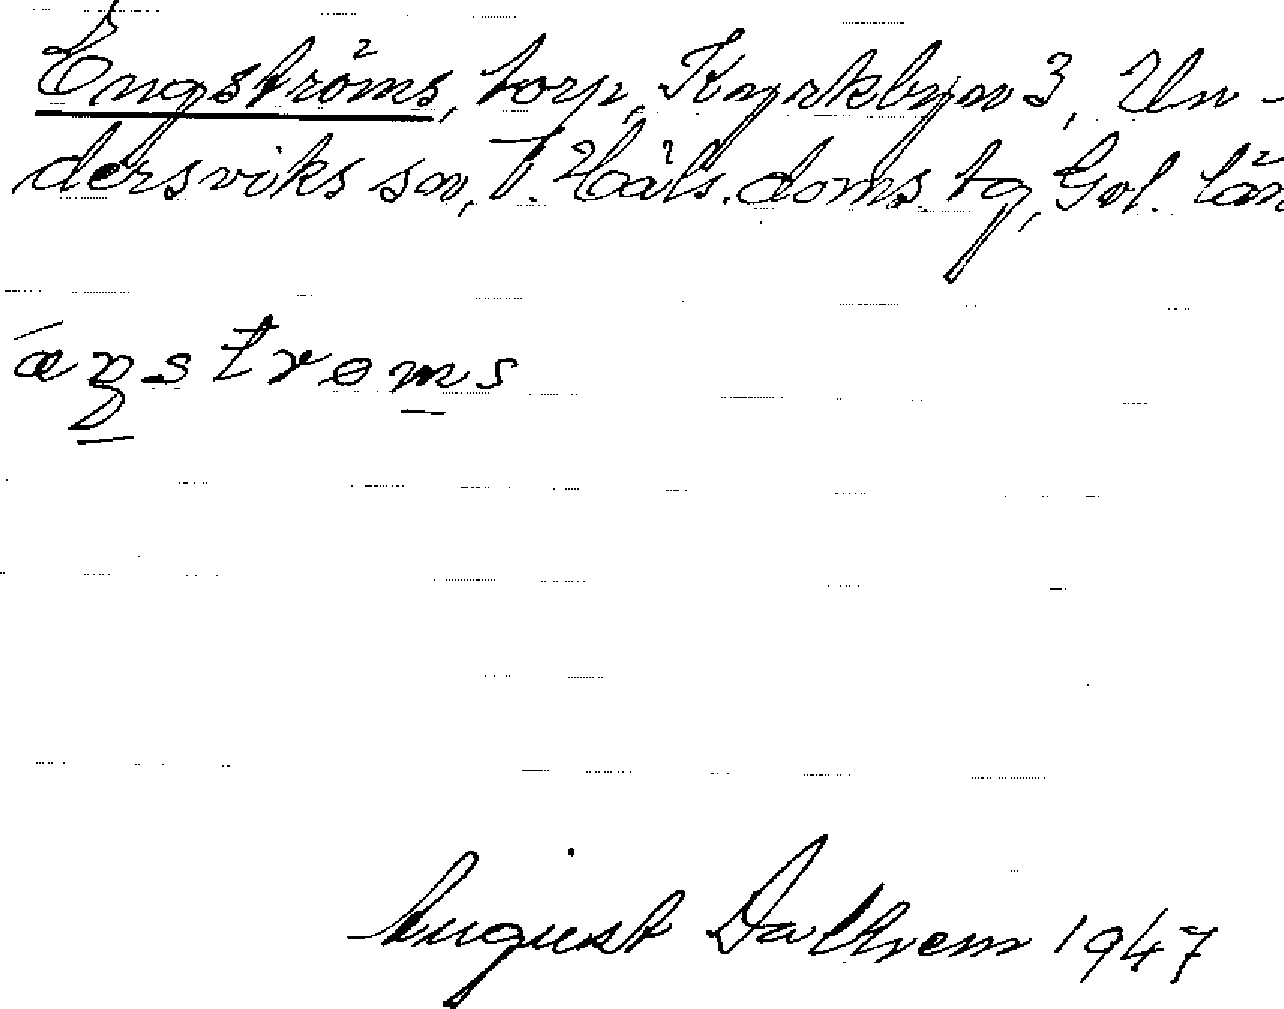 Engströms, torp, Kyrkbyn 3, Un-
dersviks sn, V. Häls. doms. tg, Gvl. län
æŋstrɵms
August Dalhem 1947